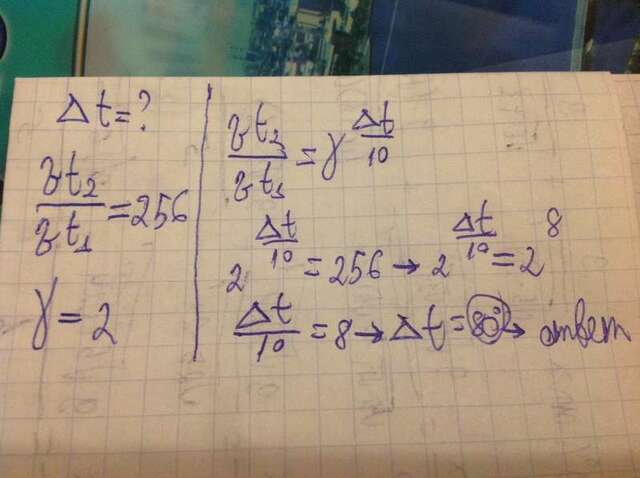 Δt=?
vt₂/vt₁=256
γ=2
vt₂/vt₁=γ^(Δt/10)
2^(Δt/10)=256→2^(Δt/10)=2^8
Δt/10=8→Δt=80°→ответ